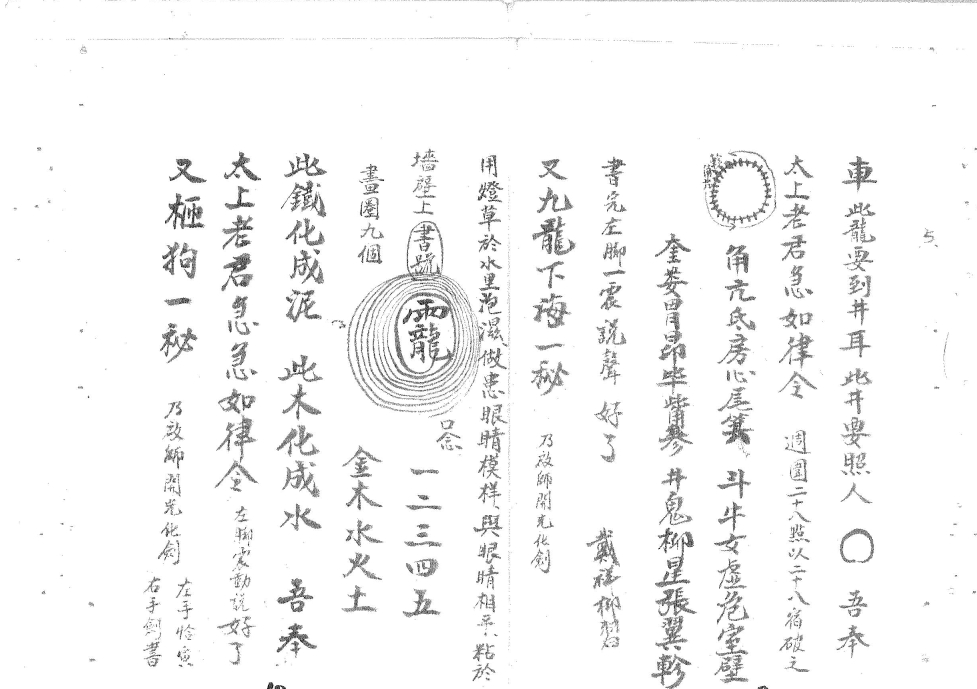 車 此龍要到井耳 此井要照人 〇 吾奉
太上老君急如律令 週圍二十八點以二十八宿破之
角亢氐房心尾箕 斗牛女虛危室壁
奎婁胃昴畢觜參 井鬼柳星張翼軫
書完左腳一震說聲 好了
又九龍下海一秘 乃啟師開光化劍
用燈草於水里泡濕做患眼睛模样與眼睛相平粘於
墻壁上 書號
畫圈九個
龍
口念 一二三四五
金木水火土
此鐵化成泥 此木化成水 吾奉
太上老君急急如律令 左腳震動說好了
又柜狗一秘 乃啟師開光化劍
左手恰寅
右手劍書
5